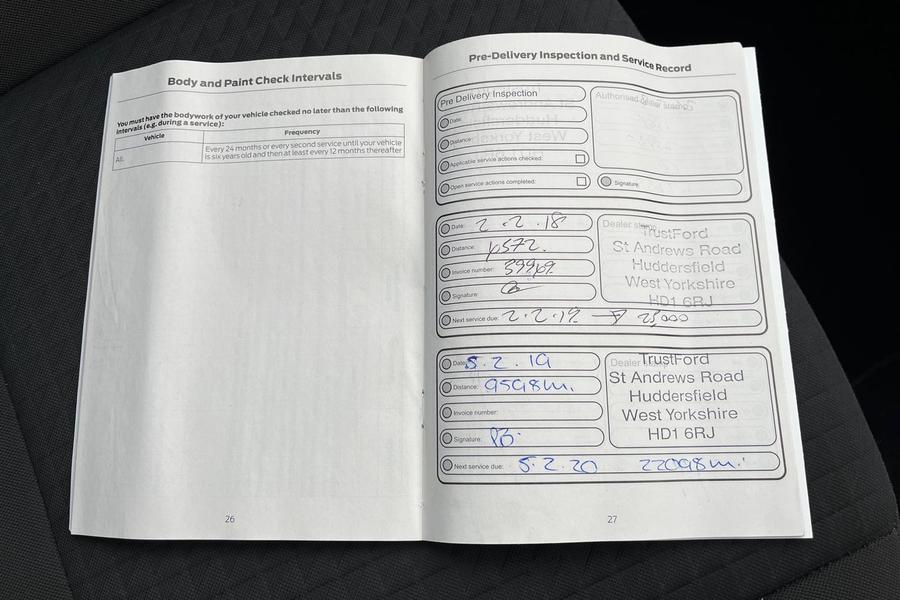 Body and Paint Check Intervals
You must have the bodywork of your vehicle checked no later than the following
intervals (e.g. during a service):
Vehicle Frequency
All. Every 24 months or every second service until your vehicle
is six years old and then at least every 12 months thereafter
26
Pre-Delivery Inspection and Service Record
Pre Delivery Inspection
Authorised dealer stamp
Date:
Distance:
Applicable service actions checked:
Open service actions completed:
Signature:
Date: 2.2.18
Distance:
Invoice number:
Signature:
Next service due: 2.2.19
Dealer stamp
TrustFord
St Andrews Road
Huddersfield
West Yorkshire
HD1 6RJ
Date: 5.2.19
Distance: 9598m.
Invoice number:
Signature: PB.
Next service due: 5.2.20 22098m.
Dealer
TrustFord
St Andrews Road
Huddersfield
West Yorkshire
HD1 6RJ
27